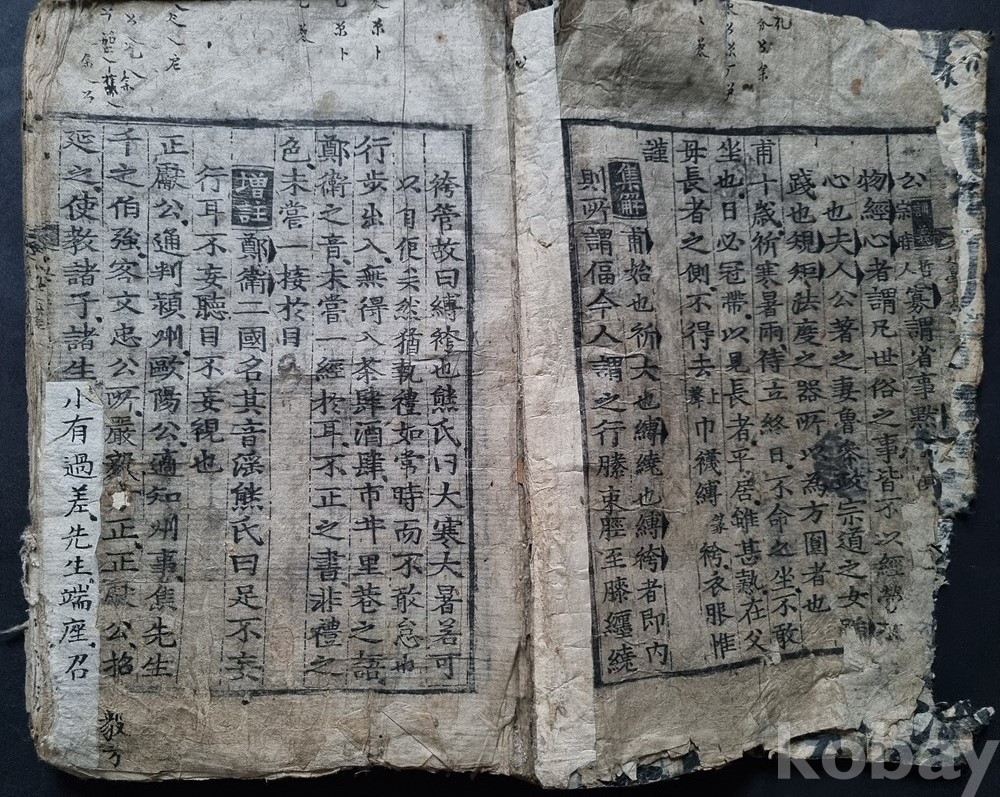 物經心者謂凡世俗之事皆不以經
心也夫人公著之妻魯參政宗道之女
踐也規矩法度之器所以為方圓者也
甫十歲祈寒暑雨侍立終日不命之坐不敢
坐也日必冠帶以見長者平居雖甚熱在父
母長者之側不得去巾襪縛袴衣服惟
謹
集解 甫始也祈大也縛繞也縛袴者即內
則所謂偪今人謂之行縢束脛至膝纏繞
袴管故曰縛袴也熊氏曰大寒大暑若可
以自便矣然猶執禮如常時而不敢怠也
行步出入無得入茶肆酒肆市井里巷之語
鄭衛之音未嘗一經於耳不正之書非禮之
色未嘗一接於目
增註 鄭衛二國名其音淫熊氏曰足不妄
行耳不妄聽目不妄視也
正獻公通判潁州歐陽公適知州事焦先生
千之伯強客文忠公所嚴毅方正正獻公招
延之使教諸子諸生
小有過差先生端座召
毅方
kobay